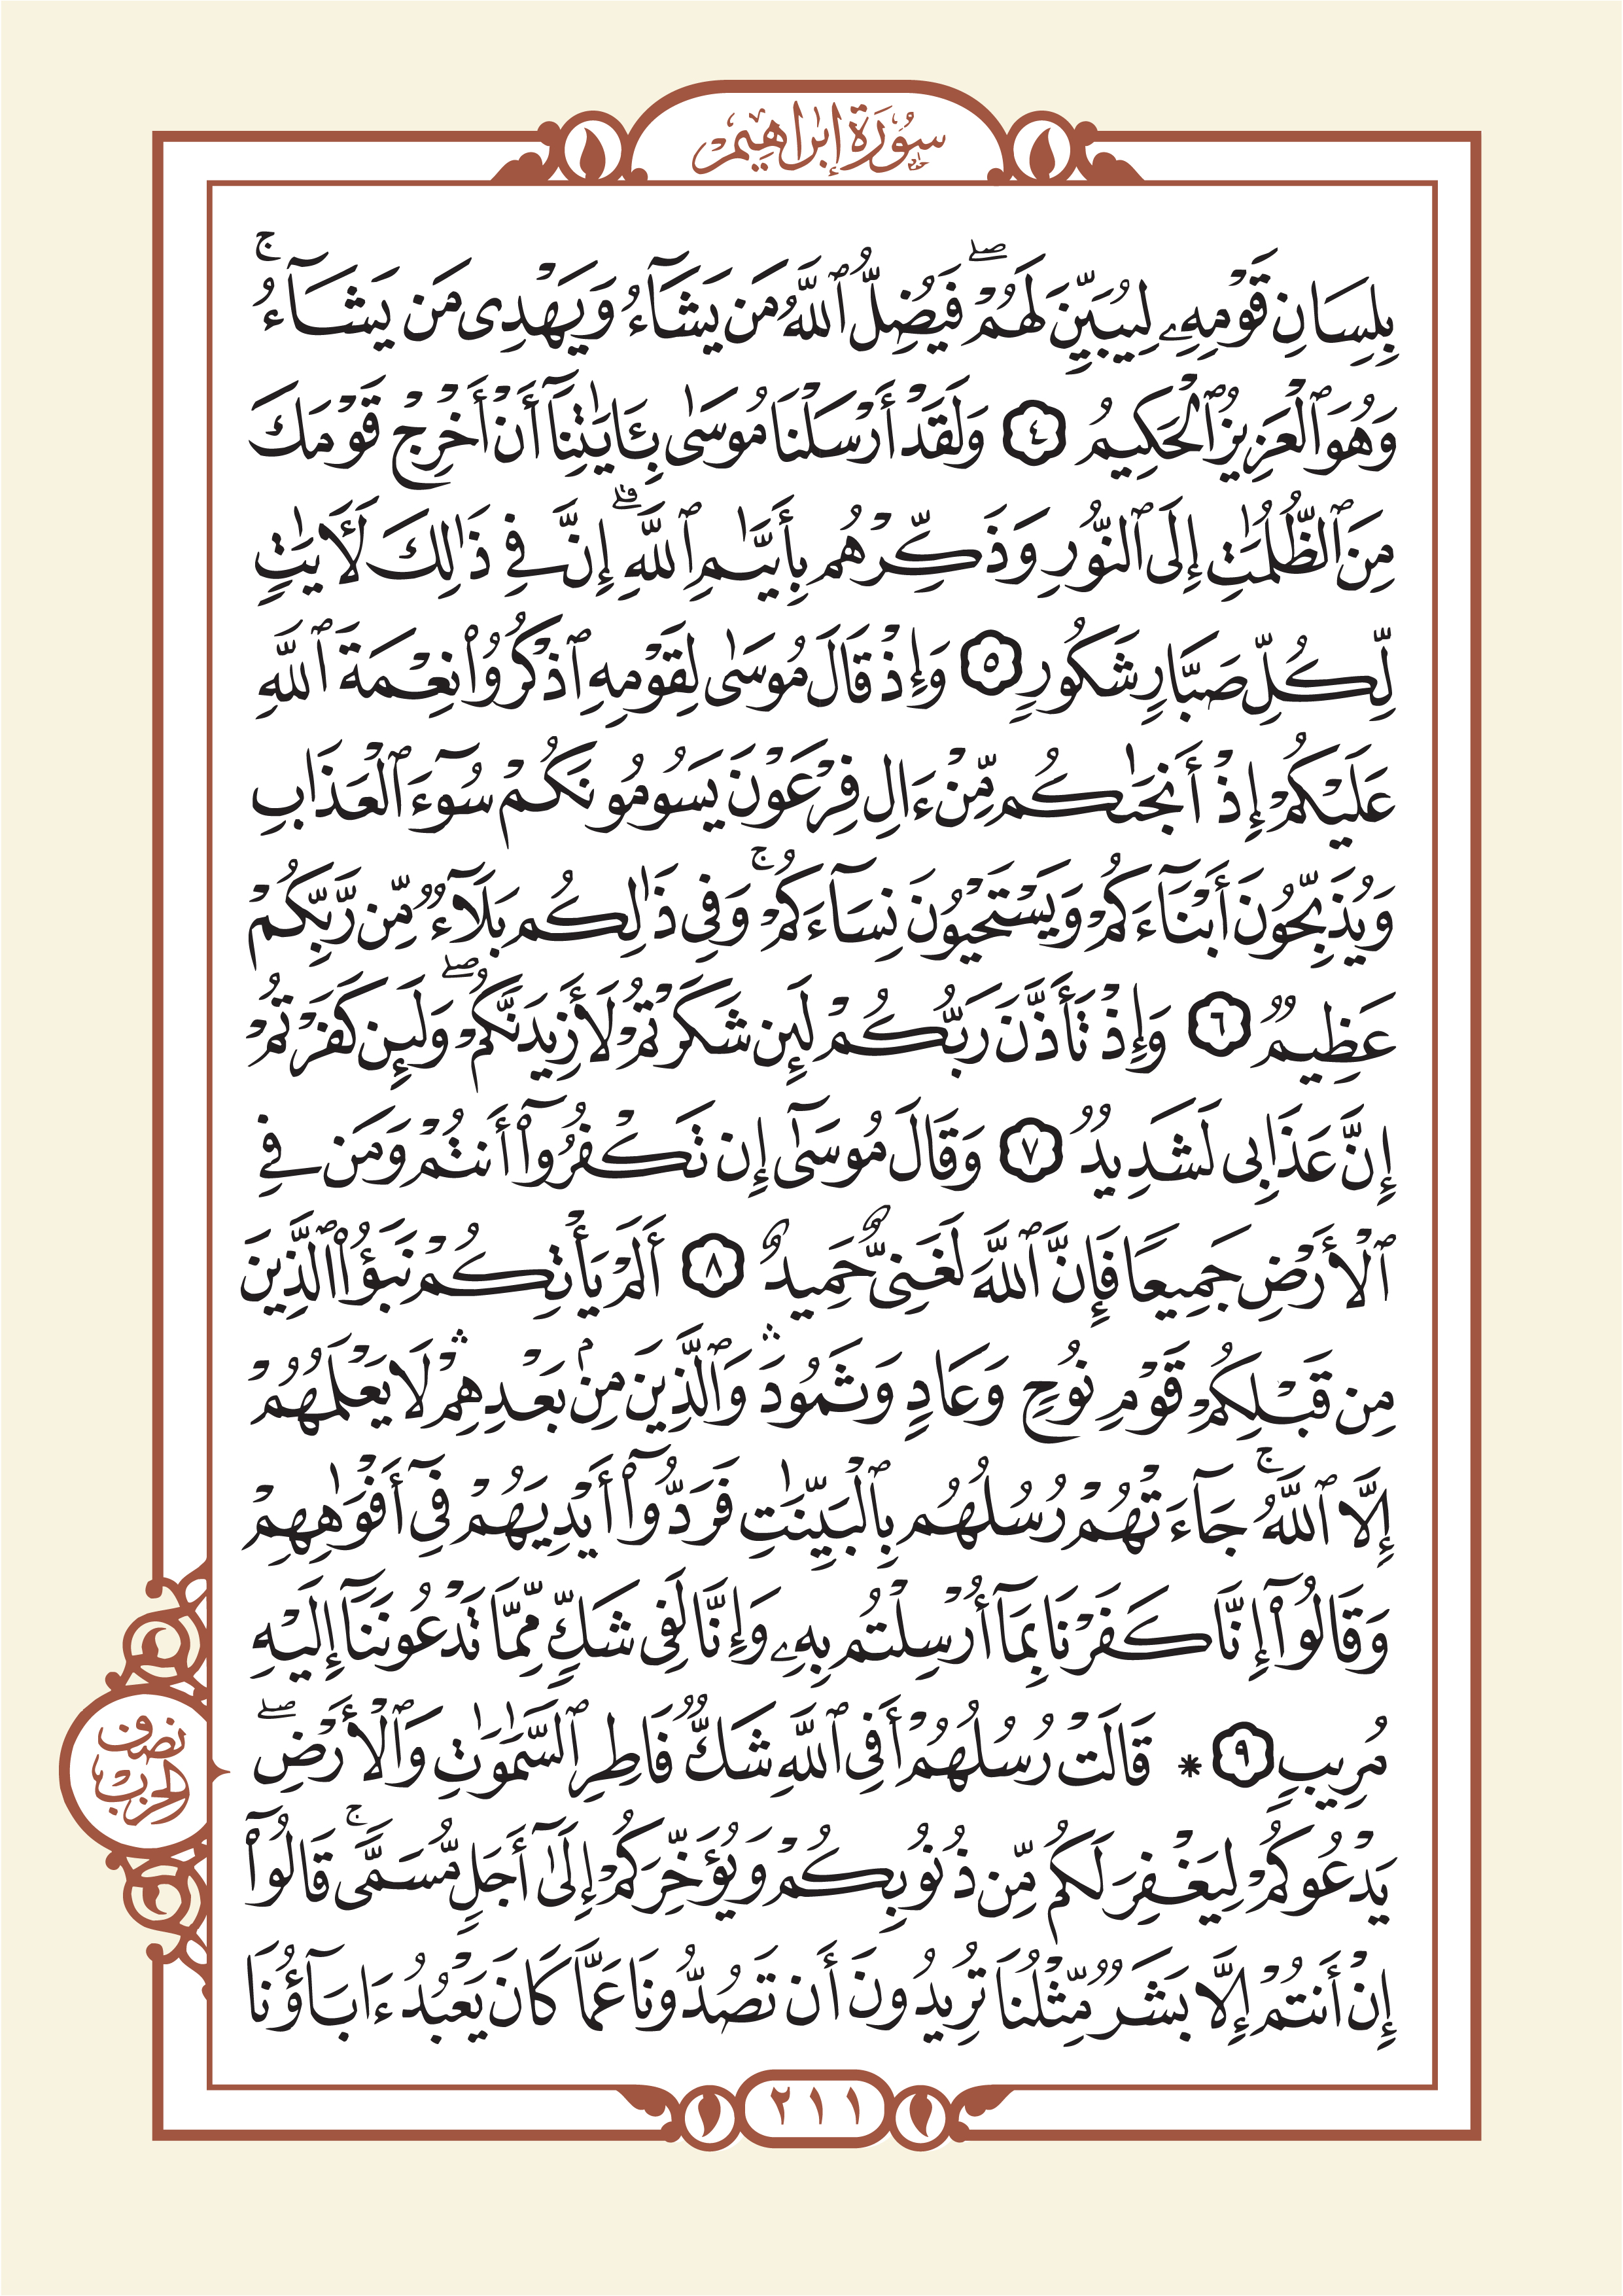 سُورَةُ إِبْرَاهِيمَ
بِلِسَانِ قَوْمِهِۦ لِيُبَيِّنَ لَهُمْۖ فَيُضِلُّ ٱللَّهُ مَن يَشَآءُ وَيَهْدِى مَن يَشَآءُۚ
وَهُوَ ٱلْعَزِيزُ ٱلْحَكِيمُ ٤ وَلَقَدْ أَرْسَلْنَا مُوسَىٰ بِـَٔايَٰتِنَآ أَنْ أَخْرِجْ قَوْمَكَ
مِنَ ٱلظُّلُمَٰتِ إِلَى ٱلنُّورِ وَذَكِّرْهُم بِأَيَّىٰمِ ٱللَّهِۗ إِنَّ فِى ذَٰلِكَ لَأٓيَٰتٍ
لِّكُلِّ صَبَّارٍ شَكُورٍ ٥ وَإِذْ قَالَ مُوسَىٰ لِقَوْمِهِ ٱذْكُرُوا۟ نِعْمَةَ ٱللَّهِ
عَلَيْكُمْ إِذْ أَنجَىٰكُم مِّنْ ءَالِ فِرْعَوْنَ يَسُومُونَكُمْ سُوٓءَ ٱلْعَذَابِ
وَيُذَبِّحُونَ أَبْنَآءَكُمْ وَيَسْتَحْيُونَ نِسَآءَكُمْۚ وَفِى ذَٰلِكُم بَلَآءٌ مِّن رَّبِّكُمْ
عَظِيمٌ ٦ وَإِذْ تَأَذَّنَ رَبُّكُمْ لَئِن شَكَرْتُمْ لَأَزِيدَنَّكُمْۖ وَلَئِن كَفَرْتُمْ
إِنَّ عَذَابِى لَشَدِيدٌ ٧ وَقَالَ مُوسَىٰٓ إِن تَكْفُرُوٓا۟ أَنتُمْ وَمَن فِى
ٱلْأَرْضِ جَمِيعًا فَإِنَّ ٱللَّهَ لَغَنِىٌّ حَمِيدٌ ٨ أَلَمْ يَأْتِكُمْ نَبَؤُا۟ ٱلَّذِينَ
مِن قَبْلِكُمْ قَوْمِ نُوحٍ وَعَادٍ وَثَمُودَۛ وَٱلَّذِينَ مِنۢ بَعْدِهِمْۛ لَا يَعْلَمُهُمْ
إِلَّا ٱللَّهُۚ جَآءَتْهُمْ رُسُلُهُم بِٱلْبَيِّنَٰتِ فَرَدُّوٓا۟ أَيْدِيَهُمْ فِىٓ أَفْوَٰهِهِمْ
وَقَالُوٓا۟ إِنَّا كَفَرْنَا بِمَآ أُرْسِلْتُم بِهِۦ وَإِنَّا لَفِى شَكٍّ مِّمَّا تَدْعُونَنَآ إِلَيْهِ
مُرِيبٍ ٩ * قَالَتْ رُسُلُهُمْ أَفِى ٱللَّهِ شَكٌّ فَاطِرِ ٱلسَّمَٰوَٰتِ وَٱلْأَرْضِۖ
نصف
الحزب
يَدْعُوكُمْ لِيَغْفِرَ لَكُم مِّن ذُنُوبِكُمْ وَيُؤَخِّرَكُمْ إِلَىٰٓ أَجَلٍ مُّسَمًّىۚ قَالُوٓا۟
إِنْ أَنتُمْ إِلَّا بَشَرٌ مِّثْلُنَا تُرِيدُونَ أَن تَصُدُّونَا عَمَّا كَانَ يَعْبُدُ ءَابَآؤُنَا
٢١١